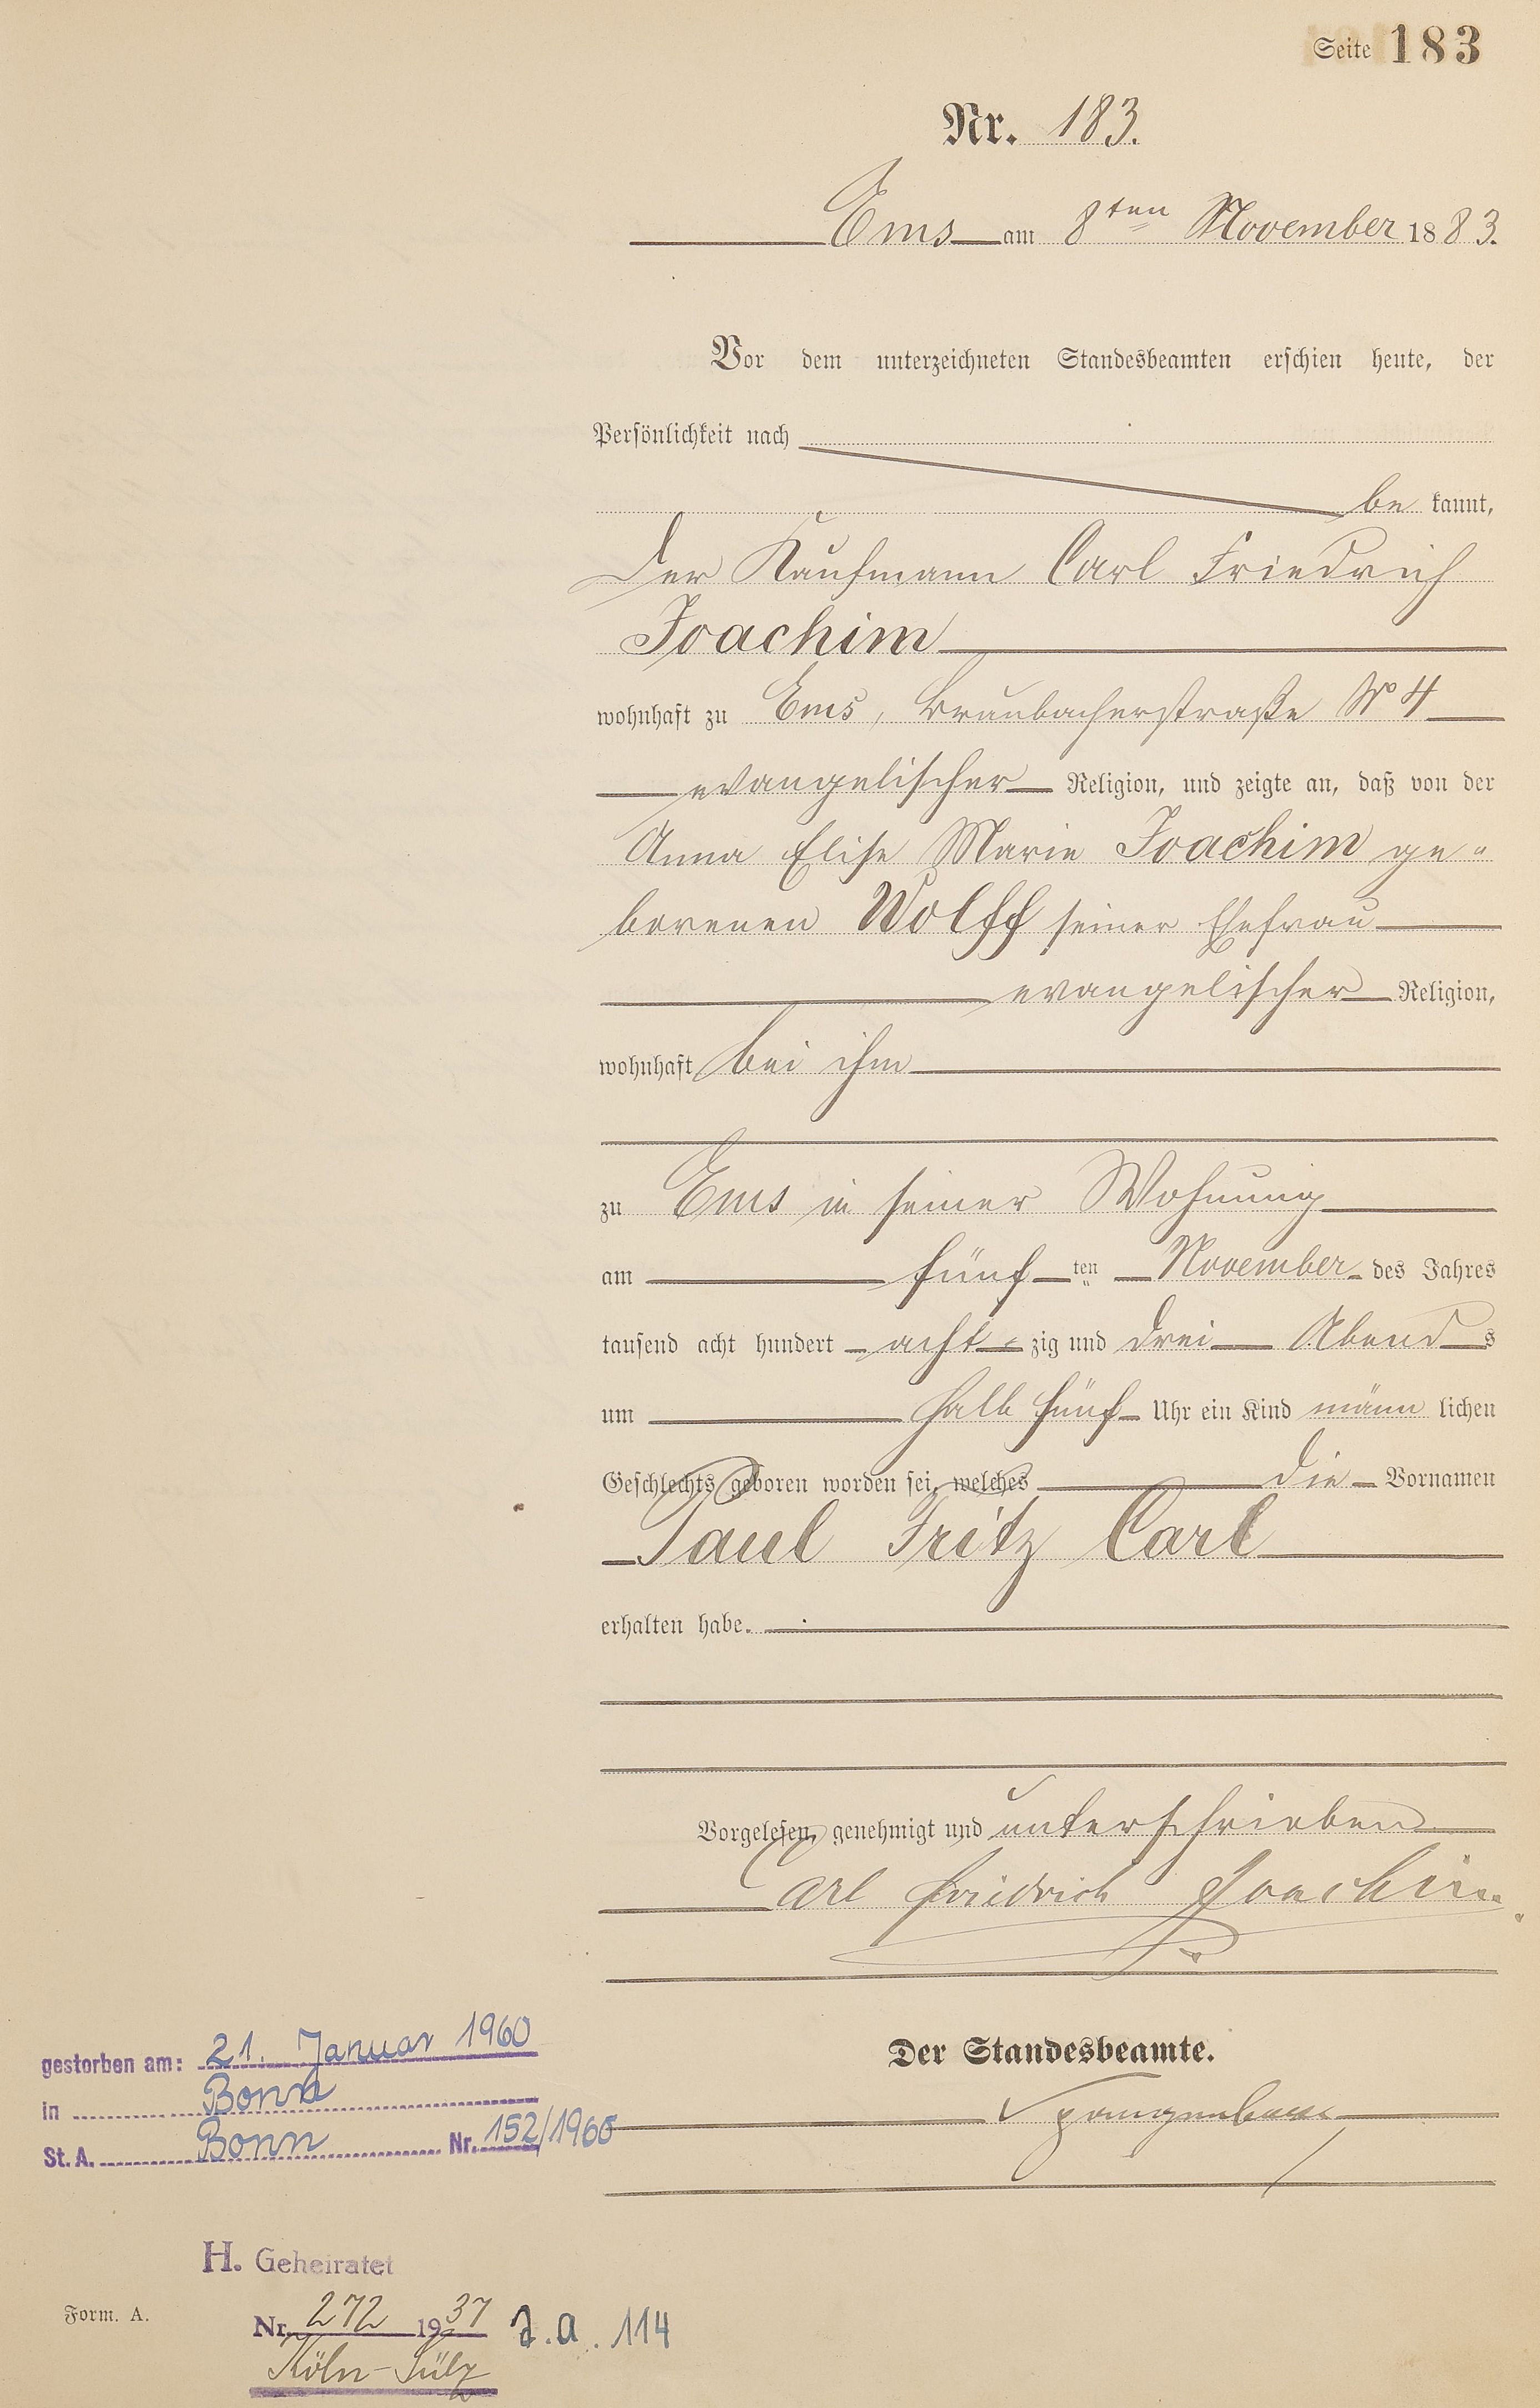 Seite 183
Nr. 183.
Ems am 8ten November 1883.
Vor dem unterzeichneten Standesbeamten erschien heute, der
Persönlichkeit nach
be kannt,
der Kaufmann Carl Friedrich
Joachim
wohnhaft zu Ems, Braubacherstraße No 4
evangelischer Religion, und zeigte an, daß von der
Anna Elise Marie Joachim ge-
borenen Wolff seiner Ehefrau
evangelischer Religion,
wohnhaft bei ihm
zu Ems in seiner Wohnung
am fünf ten November des Jahres
tausend acht hundert acht- zig und drei Abend s
um halb fünf Uhr ein Kind männ lichen
Geschlechts geboren worden sei, welches die Vornamen
Paul Fritz Carl
erhalten habe.
Vorgelesen, genehmigt und unterschrieben
Carl Friedrich Joachim
Der Standesbeamte.
gestorben am: 21. Januar 1960
in Bonn
St. A. Bonn Nr. 152/1960
H. Geheiratet
Form. A.
Nr. 272 1937 J.a. 114
Köln-Sülz